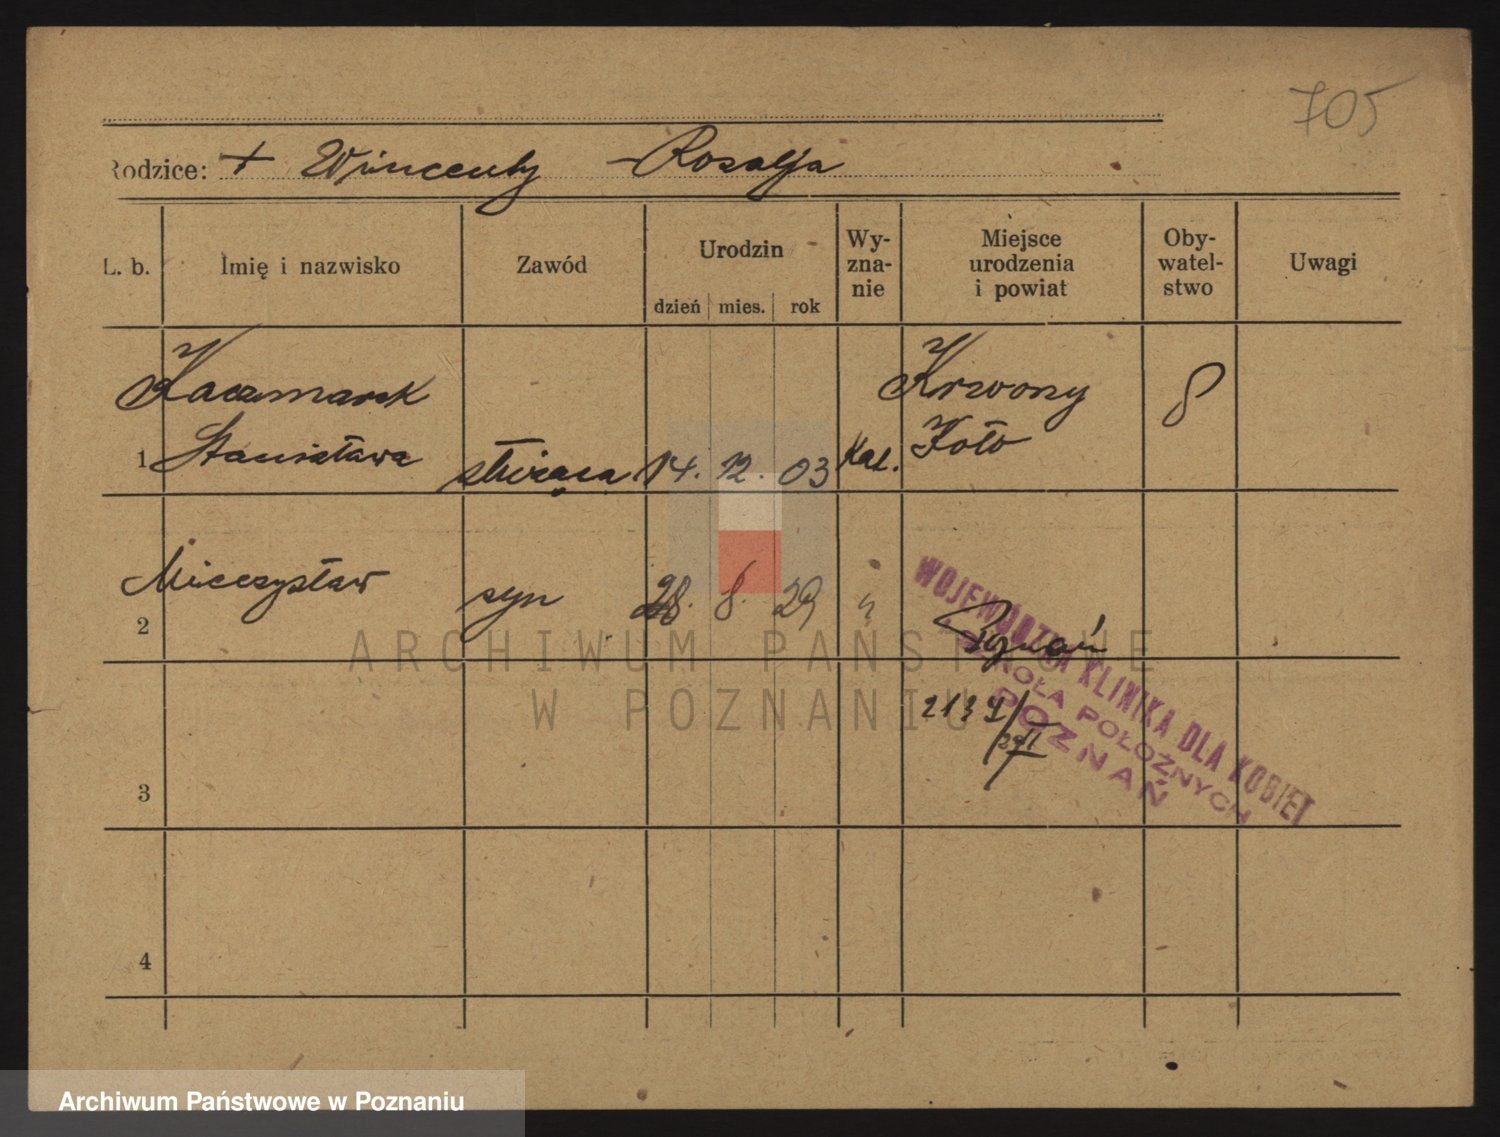 705
Rodzice: + Wincenty – Rozalja
L. b.
Imię i nazwisko
Zawód
Urodzin
dzień mies. rok
Wy-
zna-
nie
Miejsce
urodzenia
i powiat
Oby-
watel-
stwo
Uwagi
Kaczmarek Krwony
1 Stanisława służąca 14. 12. 03 Kat. Koło
Mieczysław
2 syn 28. 8. 29 " Poznań
WOJEWÓDZKA KLINIKA DLA KOBIET
SZKOŁA POŁOŻNYCH
POZNAŃ
3
4
ARCHIWUM PAŃSTWOWE
W POZNANIU
Archiwum Państwowe w Poznaniu